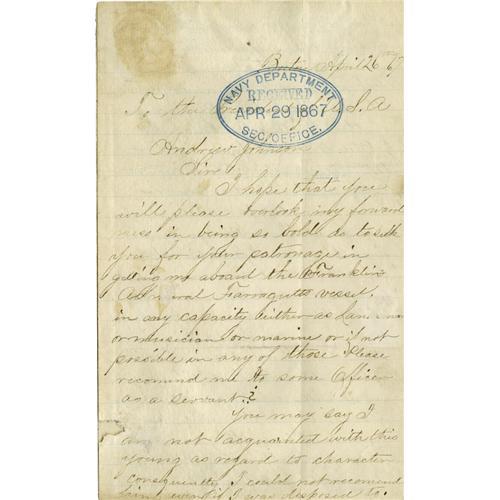 Boston April 26th 67
NAVY DEPARTMENT
RECEIVED
APR 29 1867
SEC. OFFICE.
To the U.S.A
Andrew Johnson
Sire
I hope that you
will please overlook my forward
ness in being so bold as to seek
you for your patronage in
getting me aboard the Franklin
Admiral Farraguts vessel,
in any capacity either as Lands man
or musician or marine or if not
possible in any of those Please
recomend me to some Officer
as a servant?
You may say I
am not acquanted with this
young as regard to character
consequently I could not recomend
him even if I was disposed to.